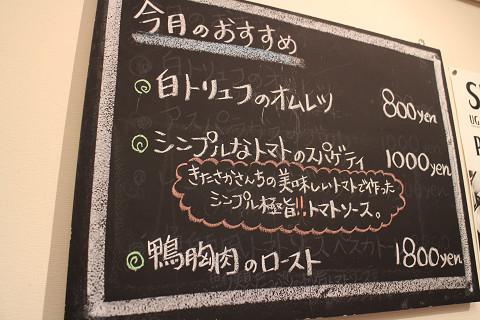 今月のおすすめ
白トリュフのオムレツ 800yen
シンプルなトマトのスパゲティ 1000yen
きたさかさんちの美味しいトマトで作った
シンプル極旨!!トマトソース。
鴨胸肉のロースト 1800yen